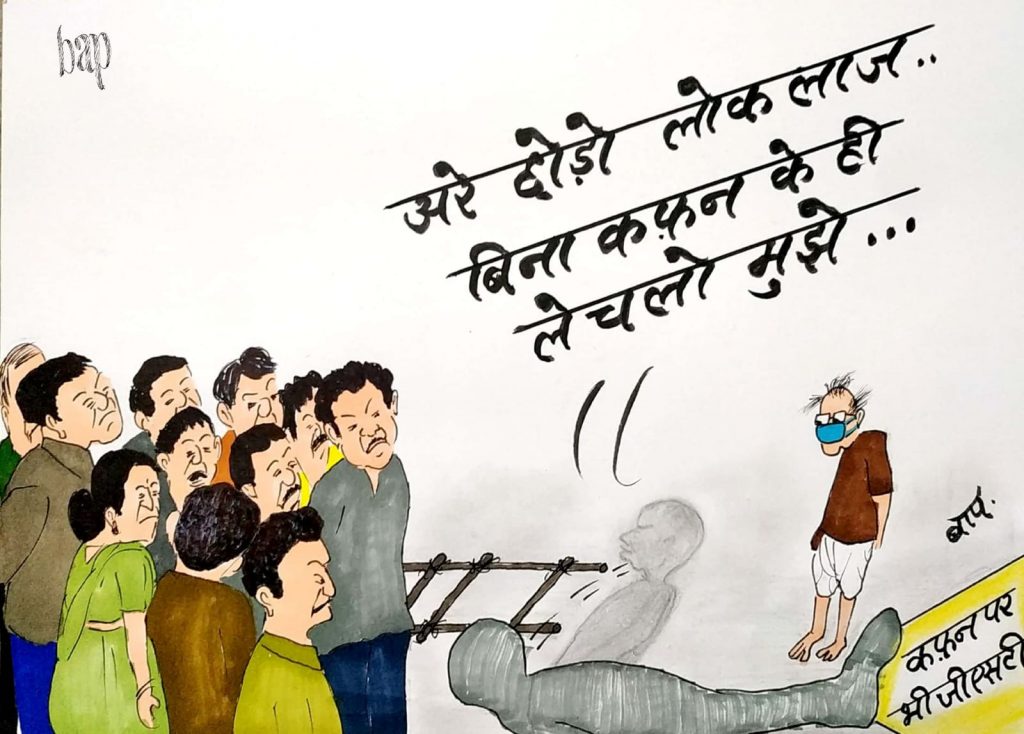 bap
अरे छोड़ो लोक लाज..
बिना कफ़न के ही
ले चलो मुझे...
बाप.
कफ़न पर
भी जीएसटी